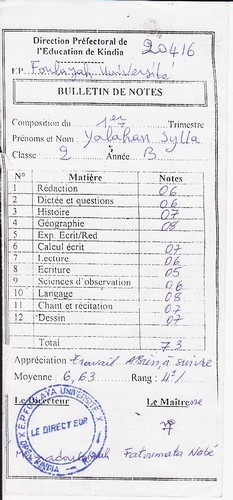 Direction Préfectoral de
l'Education de Kindia
20416
EP Foulayah Université
BULLETIN DE NOTES
Composition du 1er Trimestre
Prénoms et Nom Yalahan Sylla
Classe : 2 Année B
N° Matière Notes
1 Rédaction 06
2 Dictée et questions 06
3 Histoire 07
4 Géographie 08
5 Exp. Ecrit/Red
6 Calcul écrit 07
7 Lecture 06
8 Ecriture 05
9 Sciences d'observation 06
10 Langage 08
11 Chant et récitation 07
12 Dessin 07
Total 73
Appréciation travail à suivre
Moyenne : 6,63 Rang : 4e/
Le Directeur Le Maitresse
LE DIRECTEUR
KINDIA
Fatoumata Nabé